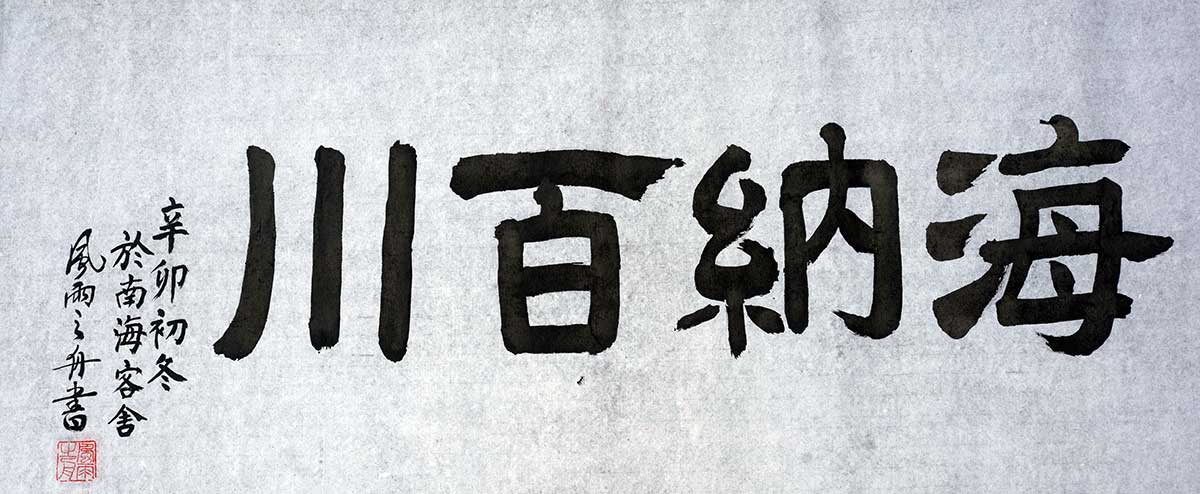 海納百川
辛卯初冬
於南海客舍
風雨之舟書
風雨之舟